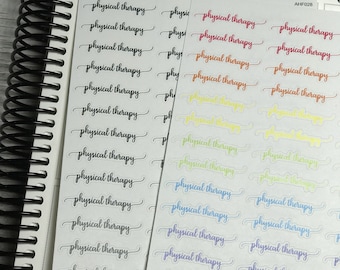 AHP020B
physical therapy
physical therapy
physical therapy
physical therapy
physical therapy
physical therapy
physical therapy
physical therapy
physical therapy
physical therapy
physical therapy
physical therapy
physical therapy
physical therapy physical therapy
physical therapy physical therapy
physical therapy physical therapy
physical therapy physical therapy
physical therapy physical therapy
physical therapy physical therapy
physical therapy physical therapy
physical therapy physical therapy
physical therapy physical therapy
physical therapy physical therapy
physical therapy physical therapy
physical therapy physical therapy